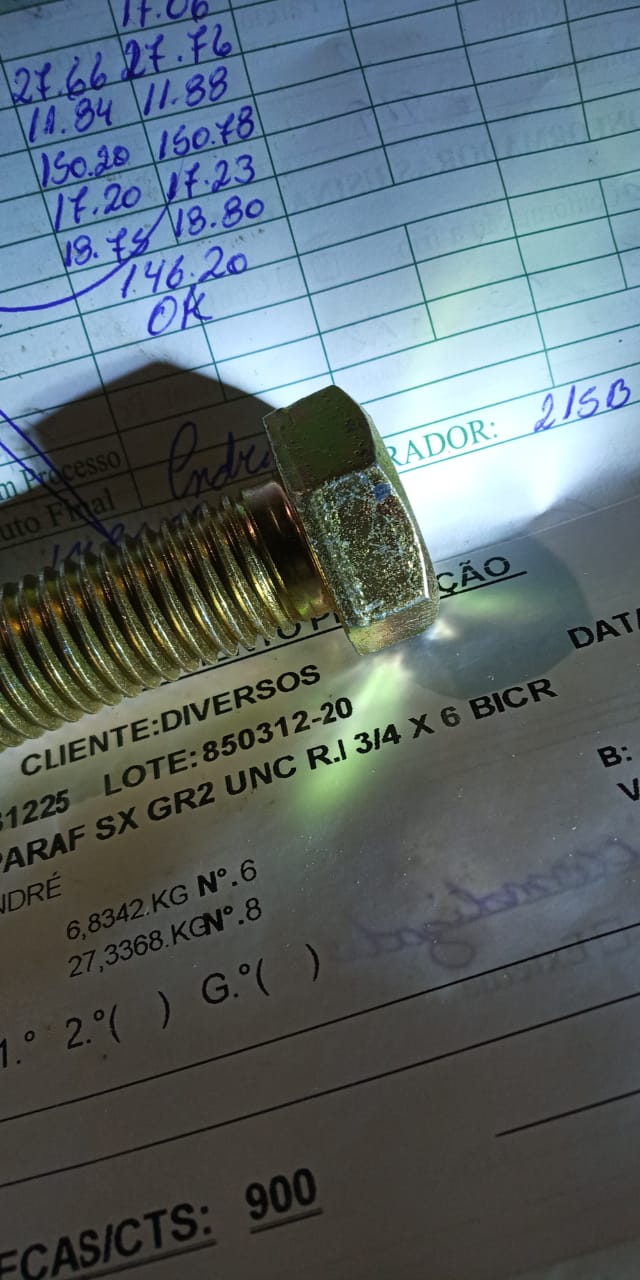 17.06
27.66 27.76
11.84 11.88
150.20 150.78
17.20 17.23
18.75 18.80
146.20
OK
Processo
RADOR: 215B
uto Final
ÇÃO
DATA
CLIENTE:DIVERSOS
31225 LOTE:850312-20
PARAF SX GR2 UNC R.I 3/4 X 6 BICR
B:
V
NDRÉ
6,8342.KG Nº.6
27,3368.KG Nº.8
1.º 2.º( ) G.º( )
ECAS/CTS: 900